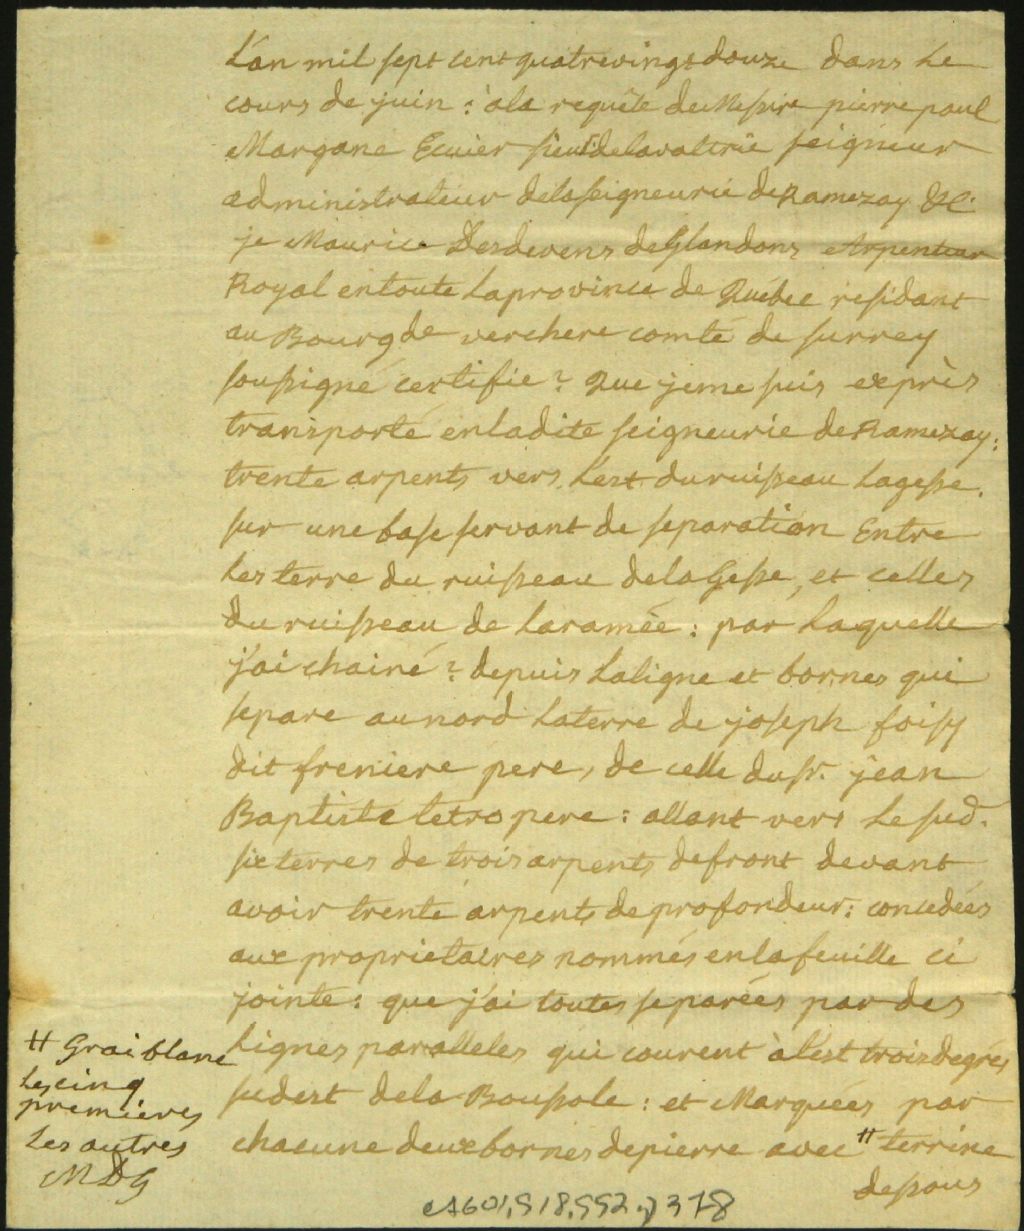 L'an mil sept cent quatrevingt douze dans Le
cours de juin : à la requête de Messire pierre paul
Margane Ecuier sieur de lavaltrie seigneur
administrateur de la seigneurie de Ramezay &c.
je Maurice Desdevens de Glandons Arpenteur
Royal en toute La province de Québec residant
au Bourg de verchere comté de surrey
soussigné certifie ? Que je me suis exprès
transporté en ladite seigneurie de Ramezay :
trente arpents vers L'est du ruisseau Lagesse.
sur une base servant de separation Entre
Les terre du ruisseau de la Gesse, et celles
du ruisseau de Laramée : par Laquelle
j'ai chainé ? depuis La ligne et bornes qui
separe au nord La terre de joseph foisy
dit freniere pere, de celle du sr. jean
Baptiste letro pere : allant vers Le sud.
six terres de trois arpents de front devant
avoir trente arpents de profondeur : concedées
aux proprietaires nommés en la feuille ci
jointe : que j'ai toutes separées par des
Lignes paralleles qui courent à l'est trois degrés
sudest de la Boussole : et Marquées par
chacune deux bornes de pierre avec # terrine
dessous
# Grai blanc
Les cinq
premieres
Les autres
MDG
A601,S18,SS2,P378